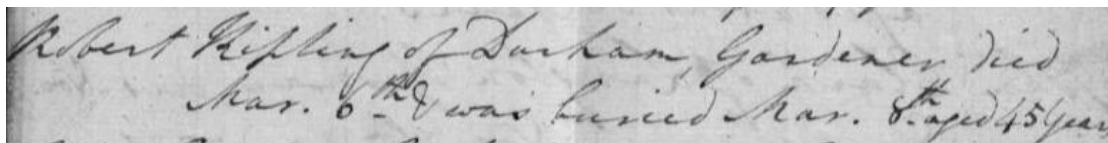 Robert Kipling of Durham, Gardener, died
Mar. 6th & was buried Mar. 8th aged 45 Years